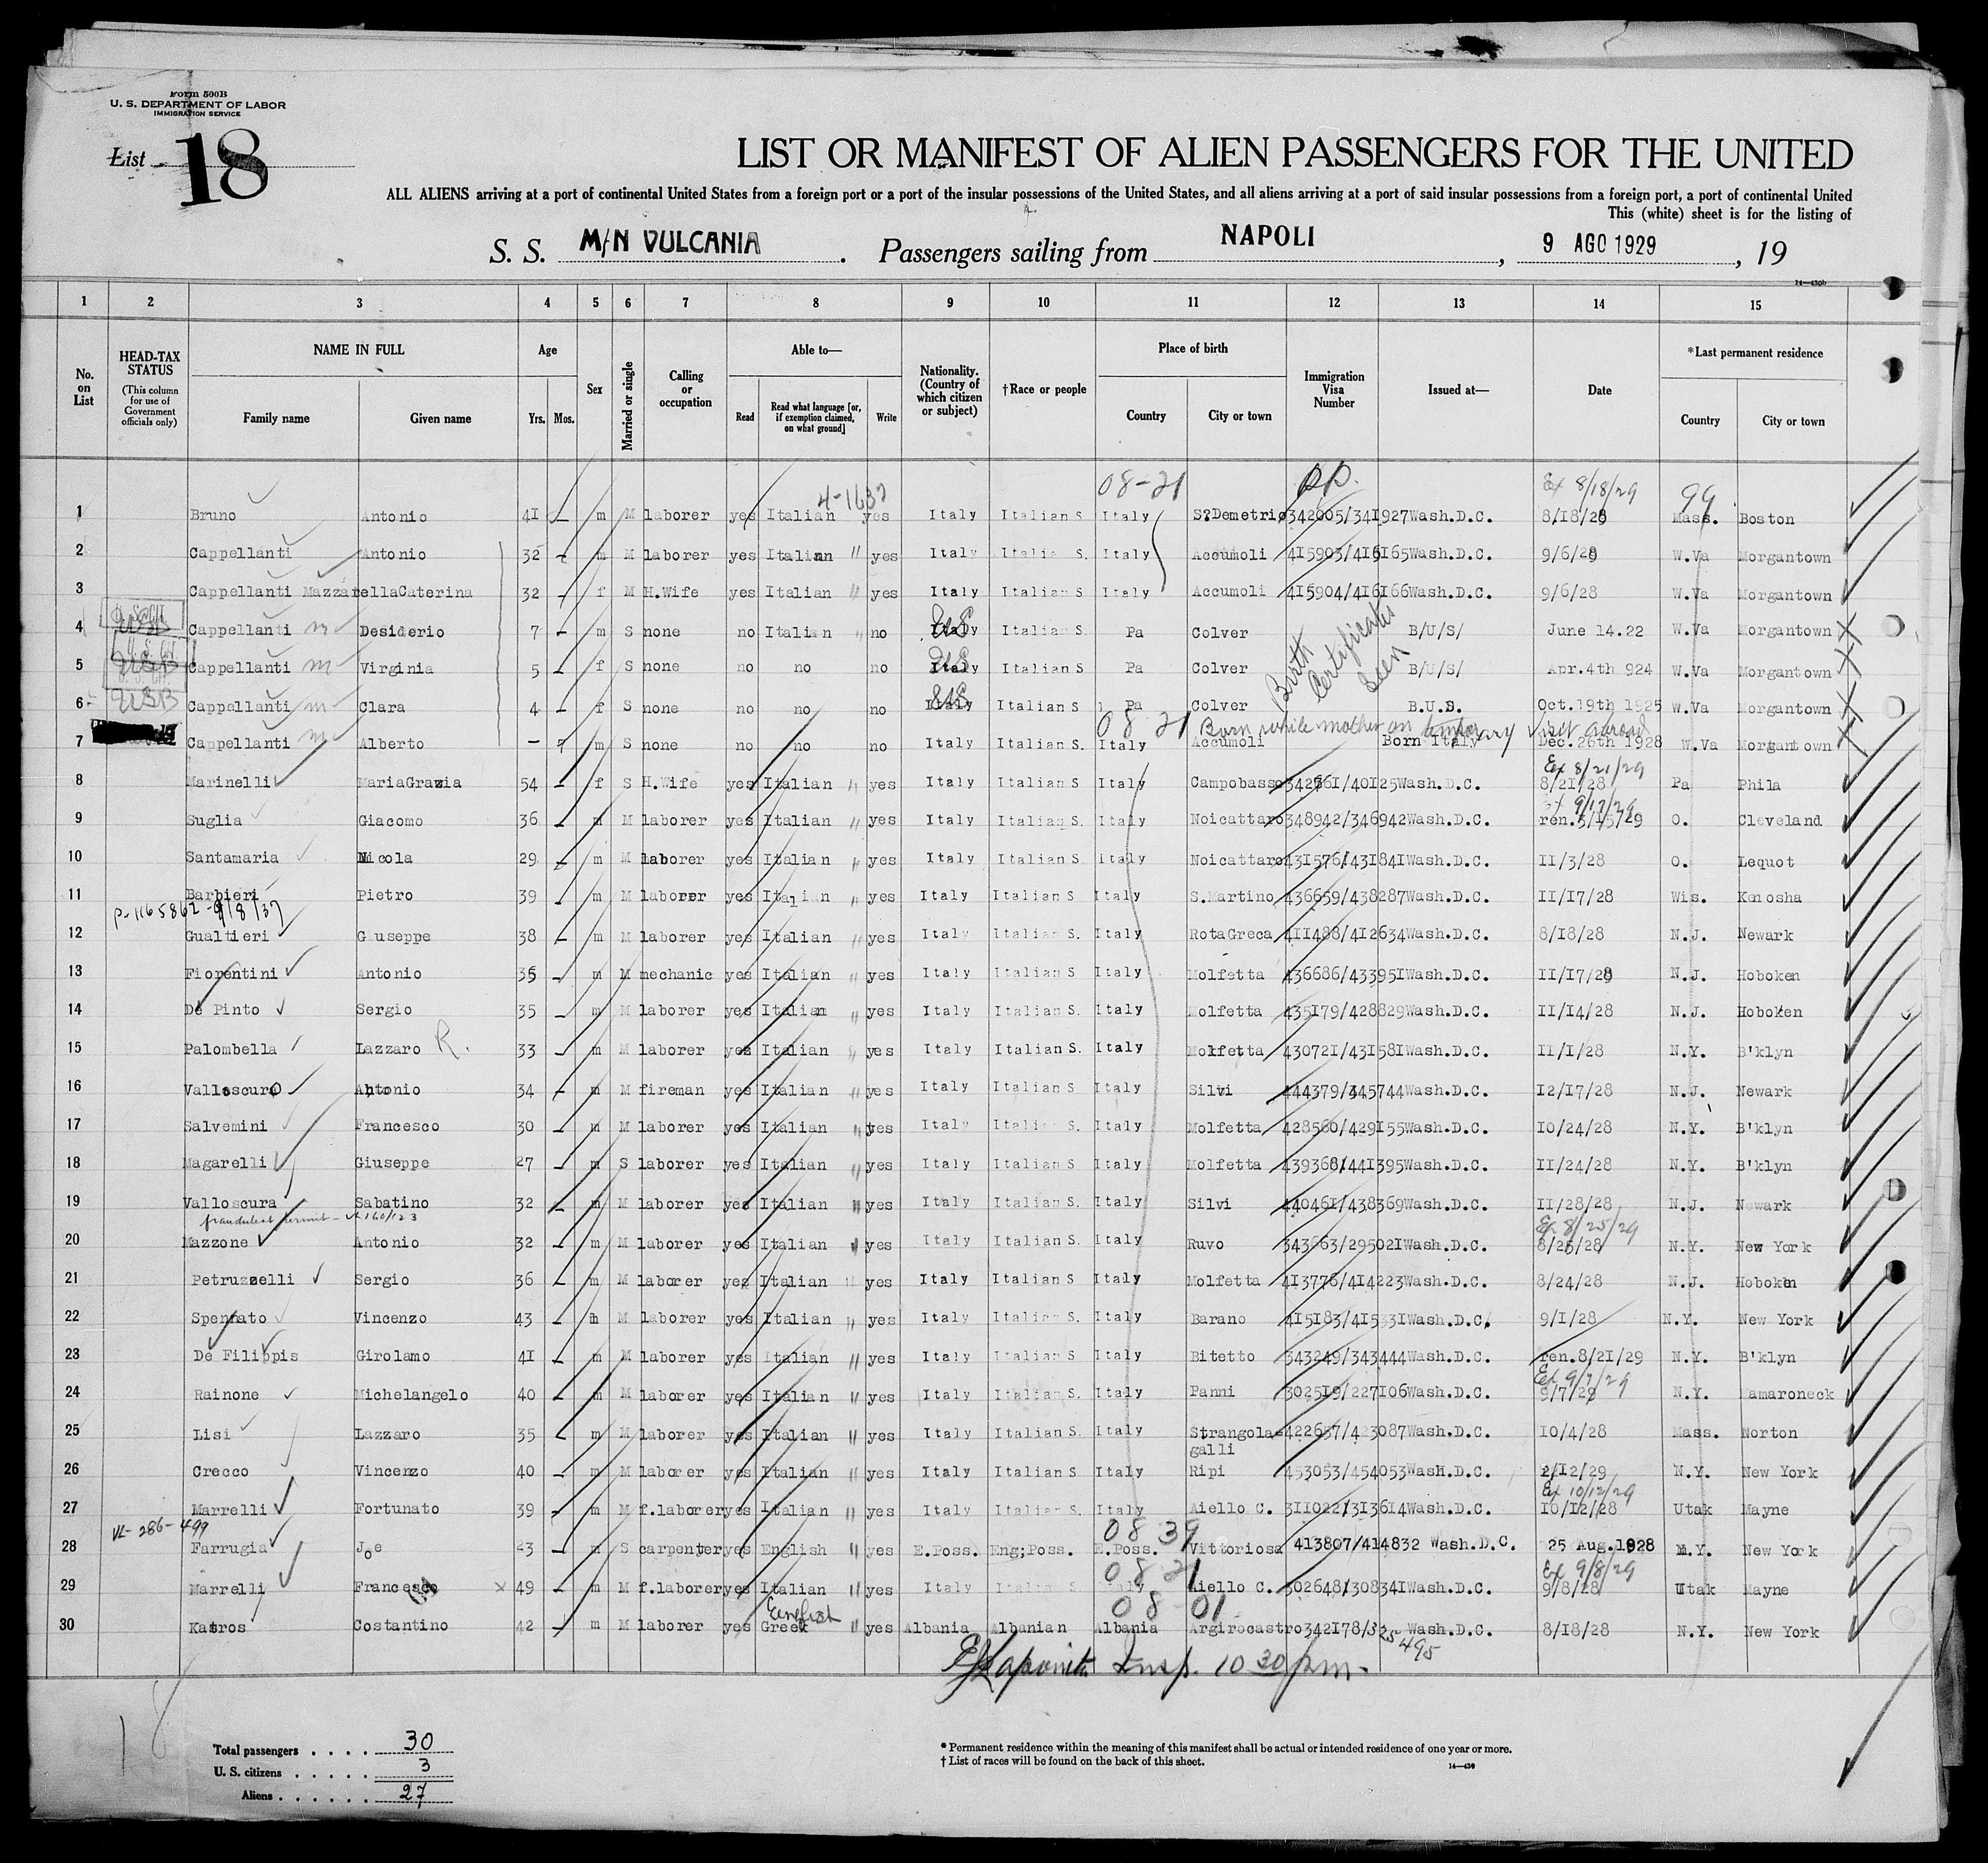 Form 500B
U. S. DEPARTMENT OF LABOR
IMMIGRATION SERVICE
List 18
LIST OR MANIFEST OF ALIEN PASSENGERS FOR THE UNITED
ALL ALIENS arriving at a port of continental United States from a foreign port or a port of the insular possessions of the United States, and all aliens arriving at a port of said insular possessions from a foreign port, a port of continental United
This (white) sheet is for the listing of
S. S. M/N VULCANIA. Passengers sailing from NAPOLI, 9 AGO 1929, 19
14—430b
1 2 3 4 5 6 7 8 9 10 11 12 13 14 15
No. on List
HEAD-TAX STATUS (This column for use of Government officials only)
NAME IN FULL Family name Given name
Age Yrs. Mos.
Sex
Married or single
Calling or occupation
Able to— Read Read what language [or, if exemption claimed, on what ground] Write
Nationality. (Country of which citizen or subject)
†Race or people
Place of birth Country City or town
Immigration Visa Number
Issued at—
Date
*Last permanent residence Country City or town
4-1637 08-21 Ex 8/18/29 99
1 Bruno Antonio 41 – m M laborer yes Italian yes Italy Italian S Italy S.Demetrio 342005/341927 Wash.D.C. 8/18/28 Mass. Boston
2 Cappellanti Antonio 32 – m M laborer yes Italian " yes Italy Italia S. Italy Accumoli 415903/416165 Wash.D.C. 9/6/28 W.Va Morgantown
3 Cappellanti Mazzarella Caterina 32 – f M H.Wife yes Italian " yes Italy Italian S Italy Accumoli 415904/416166 Wash.D.C. 9/6/28 W.Va Morgantown
4 USB Cappellanti m Desiderio 7 – m S none no Italian " no Italy Italian S. Pa Colver B/U/S/ June 14.22 W.Va Morgantown
5 USB Cappellanti m Virginia 5 – f S none no no no Italy Italian S Pa Colver B/U/S/ Apr.4th 924 W.Va Morgantown
Birth Certificates Seen
6 USB Cappellanti m Clara 4 – f S none no no no Italy Italian S Pa Colver B.U.S. Oct.19th 1925 W.Va Morgantown
08 21 Born while mother on temporary visit abroad
7 Cappellanti m Alberto – 7 m S none no no no Italy Italian S. Italy Accumoli Born Italy Dec.26th 1928 W.Va Morgantown
Ex 8/21/29
8 Marinelli MariaGrazia 54 – f S H.Wife yes Italian " yes Italy Italian S Italy Campobasso Wash.D.C. 8/21/28 Pa Phila
Ex 9/17/29
9 Suglia Giacomo 36 – m M laborer yes Italian " yes Italy Italian S. Italy Noicattaro 348942/346942 Wash.D.C. O. Cleveland
10 Santamaria Nicola 29 – m M laborer yes Italian " yes Italy Italian S Italy Noicattaro 431576/431841 Wash.D.C. 11/3/28 O. Lequot
11 Barbieri Pietro 39 – m M laborer yes Italian " yes Italy Italian S Italy S.Martino 436659/438287 Wash.D.C. 11/17/28 Wis. Kenosha
P-1165862-9/8/37
12 Gualtieri Giuseppe 38 – m M laborer yes Italian " yes Italy Italian S. Italy RotaGreca 411488/412634 Wash.D.C. 8/18/28 N.J. Newark
13 Fiorentini Antonio 35 – m M mechanic yes Italian " yes Italy Italian S Italy Molfetta 436686/433951 Wash.D.C. 11/17/28 N.J. Hoboken
14 De Pinto Sergio 35 – m M laborer yes Italian " yes Italy Italian S. Italy Molfetta 435179/428829 Wash.D.C. 11/14/28 N.J. Hoboken
15 Palombella Lazzaro R. 33 – m M laborer yes Italian " yes Italy Italian S. Italy Molfetta 430721/431581 Wash.D.C. 11/1/28 N.Y. B'klyn
16 Valloscuro Antonio 34 – m M fireman yes Italian " yes Italy Italian S Italy Silvi 444379/445744 Wash.D.C. 12/17/28 N.J. Newark
17 Salvemini Francesco 30 – m M laborer yes Italian " yes Italy Italian S. Italy Molfetta 428560/429155 Wash.D.C. 10/24/28 N.Y. B'klyn
18 Magarelli Giuseppe 27 – m S laborer yes Italian " yes Italy Italian S Italy Molfetta 439368/441395 Wash.D.C. 11/24/28 N.Y. B'klyn
19 Valloscura Sabatino 32 – m M laborer yes Italian " yes Italy Italian S. Italy Silvi 440461/438369 Wash.D.C. 11/28/28 N.J. Newark
fraudulent permit Ex 8/25/29
20 Mazzone Antonio 32 – m M laborer yes Italian " yes Italy Italian S. Italy Ruvo 343663/295021 Wash.D.C. 8/25/28 N.Y. New York
21 Petruzzelli Sergio 36 – m M laborer yes Italian " yes Italy Italian S Italy Molfetta 413776/414223 Wash.D.C. 8/24/28 N.J. Hoboken
22 Spennato Vincenzo 43 – m M laborer yes Italian " yes Italy Italian S. Italy Barano 415183/415331 Wash.D.C. 9/1/28 N.Y. New York
23 De Filippis Girolamo 41 – m M laborer yes Italian " yes Italy Italian S Italy Bitetto 343249/343444 Wash.D.C. ren.8/21/29 N.Y. B'klyn
Ex 9/7/29
24 Rainone Michelangelo 40 – m M laborer yes Italian " yes Italy Italian S. Italy Panni 302519/227106 Wash.D.C. 9/7/28 N.Y. Mamaroneck
25 Lisi Lazzaro 35 – m M laborer yes Italian " yes Italy Italian S. Italy Strangola-galli 422657/423087 Wash.D.C. 10/4/28 Mass. Norton
26 Crecco Vincenzo 40 – m M laborer yes Italian " yes Italy Italian S Italy Ripi 453053/454053 Wash.D.C. 2/12/29 N.Y. New York
Ex 10/12/29
27 Marrelli Fortunato 39 – m M f.laborer yes Italian " yes Italy Italian S. Italy Aiello C. 311022/313614 Wash.D.C. 10/12/28 Utak Mayne
VL-286-499 08 39
28 Farrugia Joe 43 – m S carpenter yes English " yes E.Poss. Eng;Poss. E.Poss. Vittoriosa 413807/414832 Wash.D.C. 25 Aug.1928 N.Y. New York
08 21 Ex 9/8/29
29 Marrelli Francesco × 49 – m M f.laborer yes Italian " yes Italy Italian S Italy Aiello C. 302648/308341 Wash.D.C. 9/8/28 Utak Mayne
English 08 01
30 Kastros Costantino 42 – m M laborer yes Greek " yes Albania Albanian Albania Argirocastro 342178/325495 Wash.D.C. 8/18/28 N.Y. New York
Insp. 10 30 pm.
18
Total passengers . . . . 30
U. S. citizens . . . . . 3
Aliens . . . . . . 27
* Permanent residence within the meaning of this manifest shall be actual or intended residence of one year or more.
† List of races will be found on the back of this sheet.
14—430